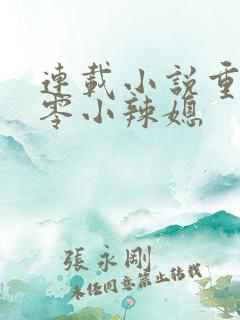 連載小說重
零小辣媳
張永剛
未经同意禁止转载